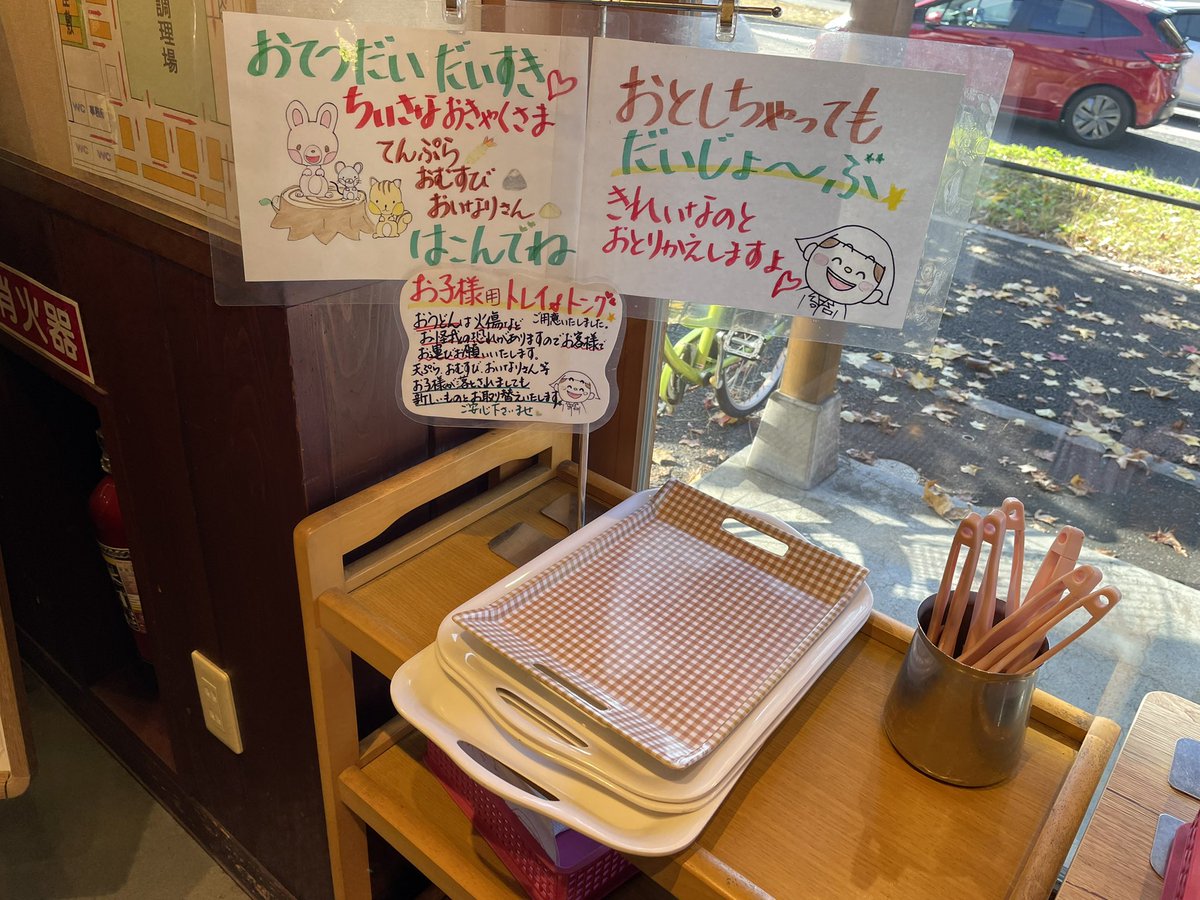 調理場
WC
WC
WC
消火器
おてつだい だいすき
ちいさなおきゃくさま
てんぷら
おむすび
おいなりさん
はこんでね
おとしちゃっても
だいじょ〜ぶ
きれいなのと
おとりかえしますよ
お子様用トレイ&トング
おうどんは火傷など ご用意いたしました。
お怪我の恐れがありますのでお客様で
お運びお願いいたします。
天ぷら、おむすび、おいなりさん等
お子様が落とされましても
新しいものとお取り替えいたします。
ご安心下さいませ